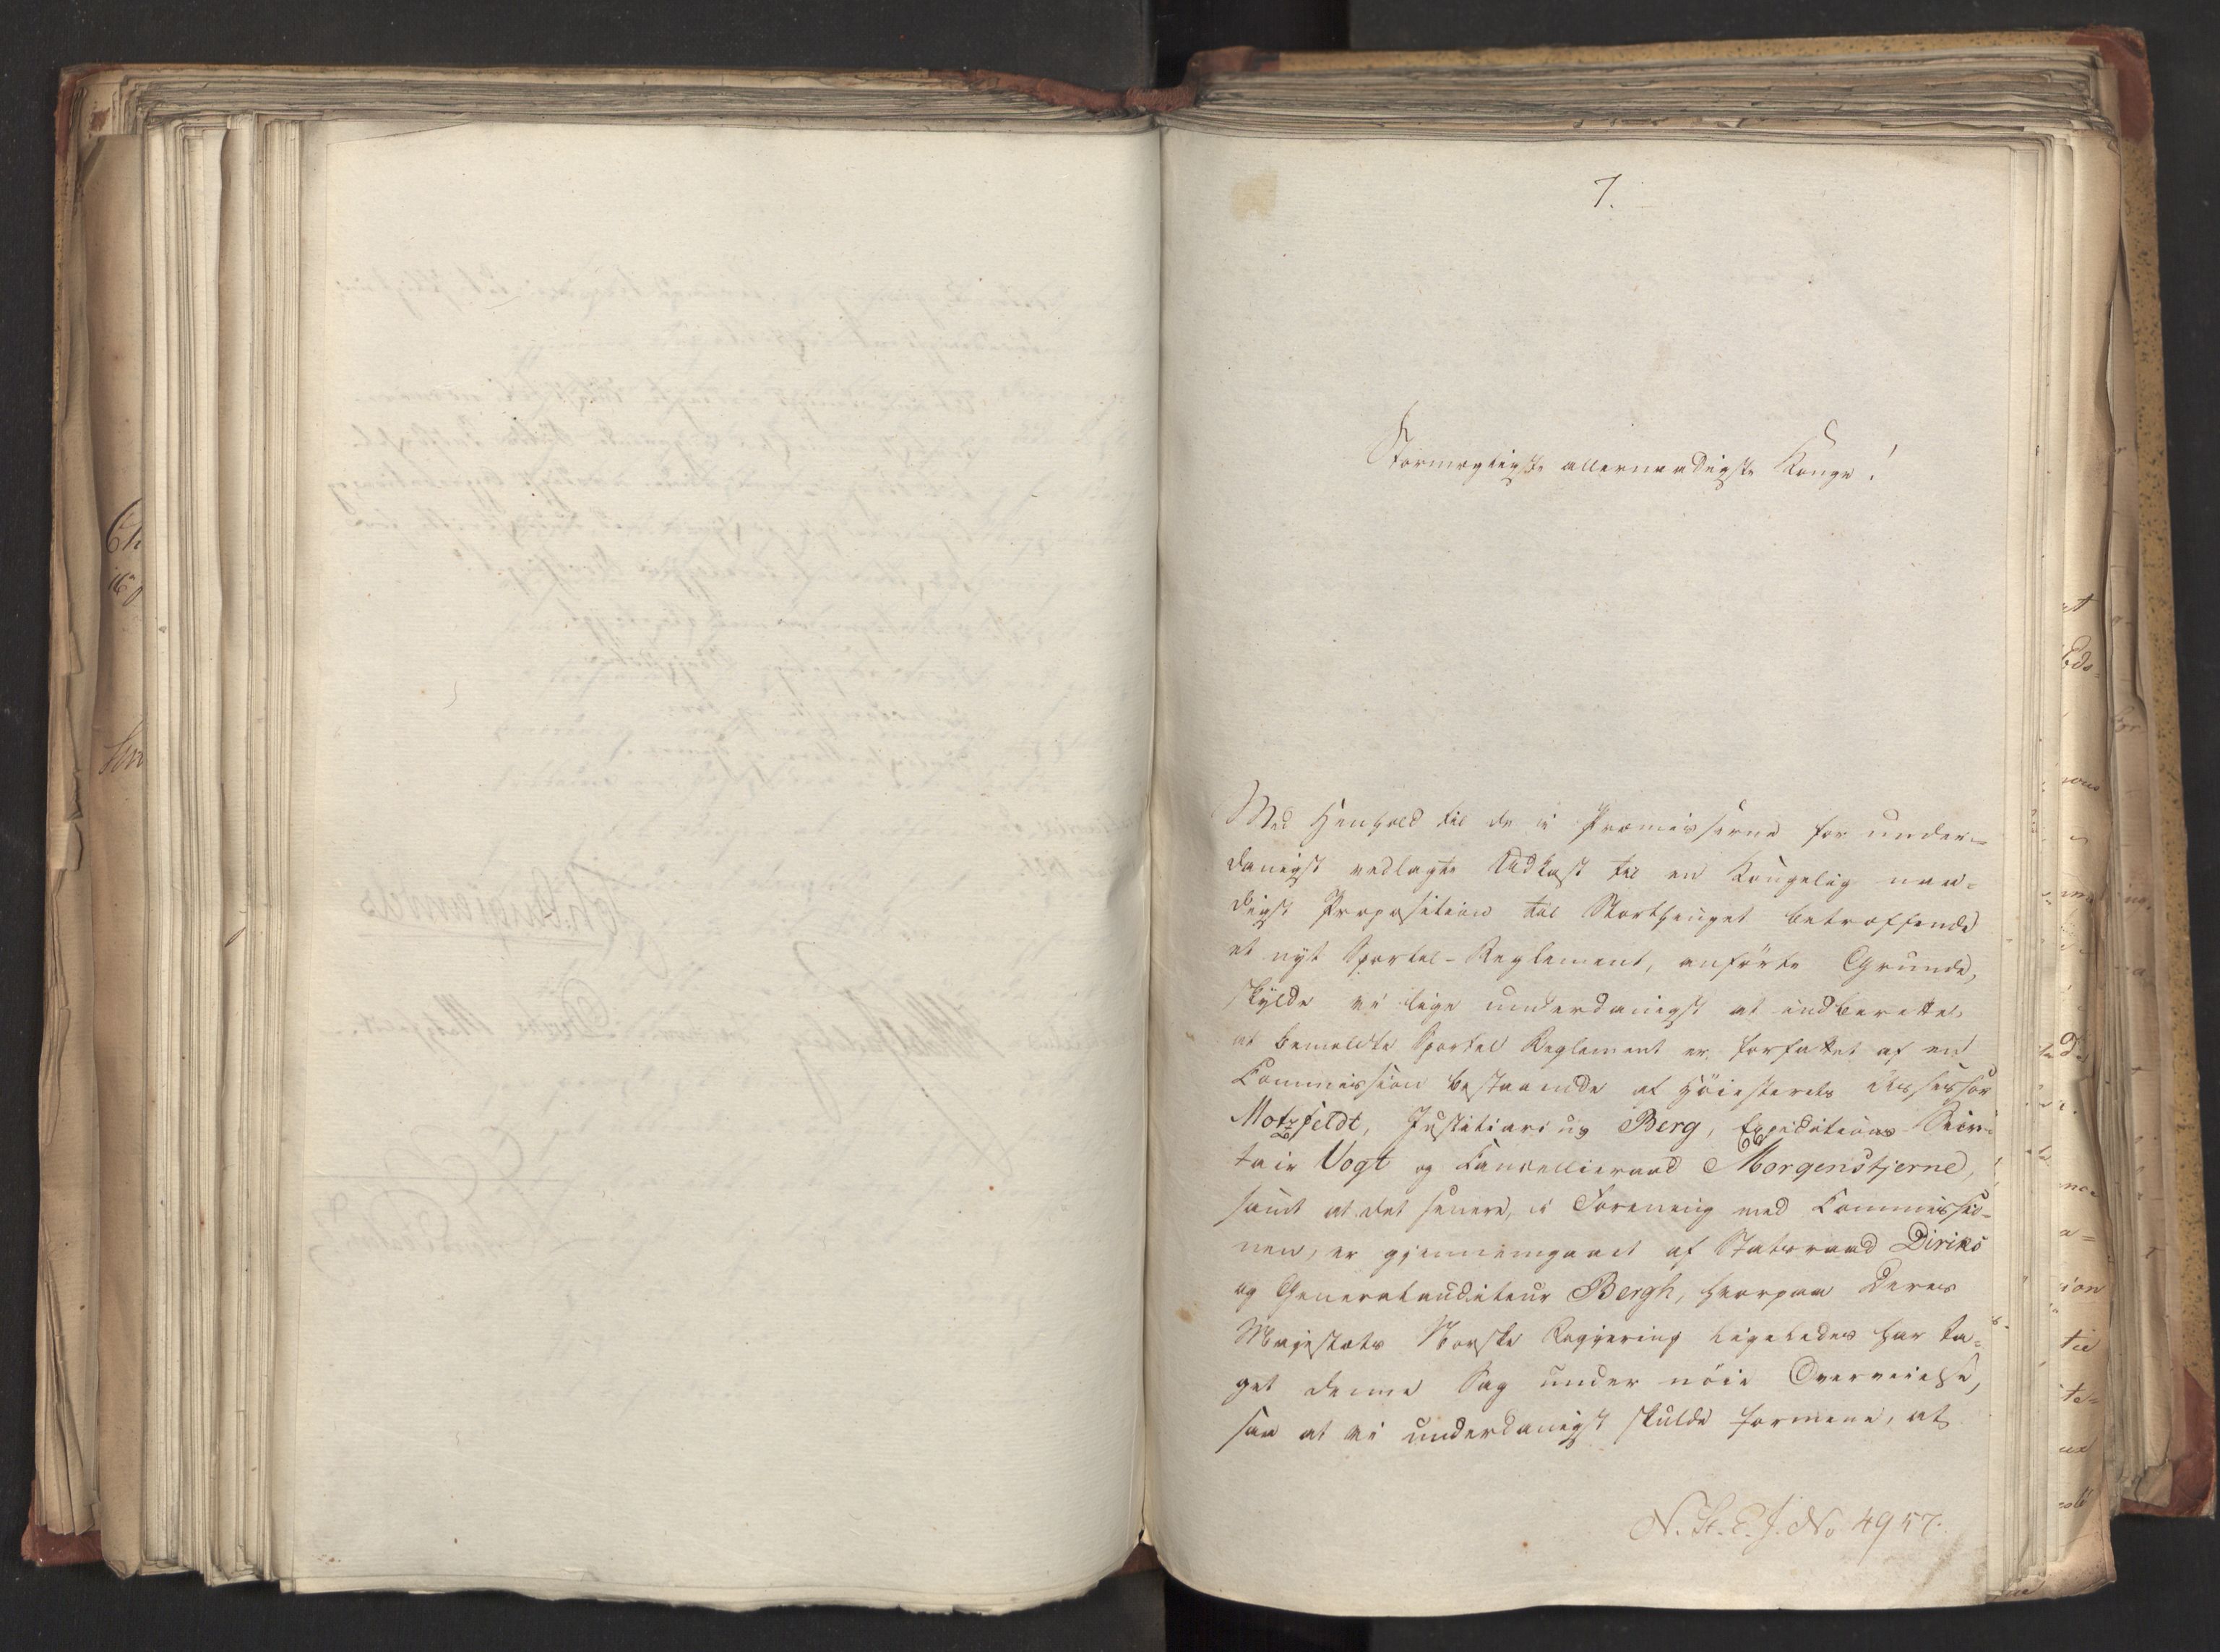 7.
Stormægtigste allernaadigste Konge!
Med Henhold til de i Præmisserne for under=
danigst vedlagte Udkast til en Kongelig naa=
digst Proposition til Storthinget betræffende
et nyt Sportel-Reglement, anførte Grunde,
skulde vi lige underdanigst at indberette,
at bemeldte Sportel Reglement er forfattet af en
Commission bestaaende af Høiesterets Assessor
Motzfeldt, Justitiarius Berg, Expeditions Secre=
tair Vogt og Cancellieraad Morgenstjerne,
samt at det senere, i Forening med Commissio=
nen, er gjennemgaaet af Statsraad Diriks
og Generalauditeur Bergh, hvorpaa Deres
Majestæts Norske Regjering ligeledes har ta=
get denne Sag under nøie Overveielse,
saa at vi underdanigst skulde formene, at
N. St. E. J. No 4957.